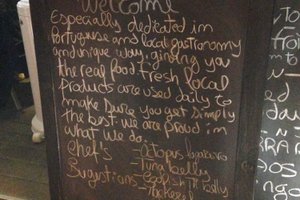 Welcome
Especially dedicated in
Portuguese and local gastronomy
and unique way, ginding you
the real food. Fresh local
Products are used daily to
make sure you get simply
the best we are proud in
what we do.
Chef's - Octopus
Tuna belly
Sugestions - Codfish belly